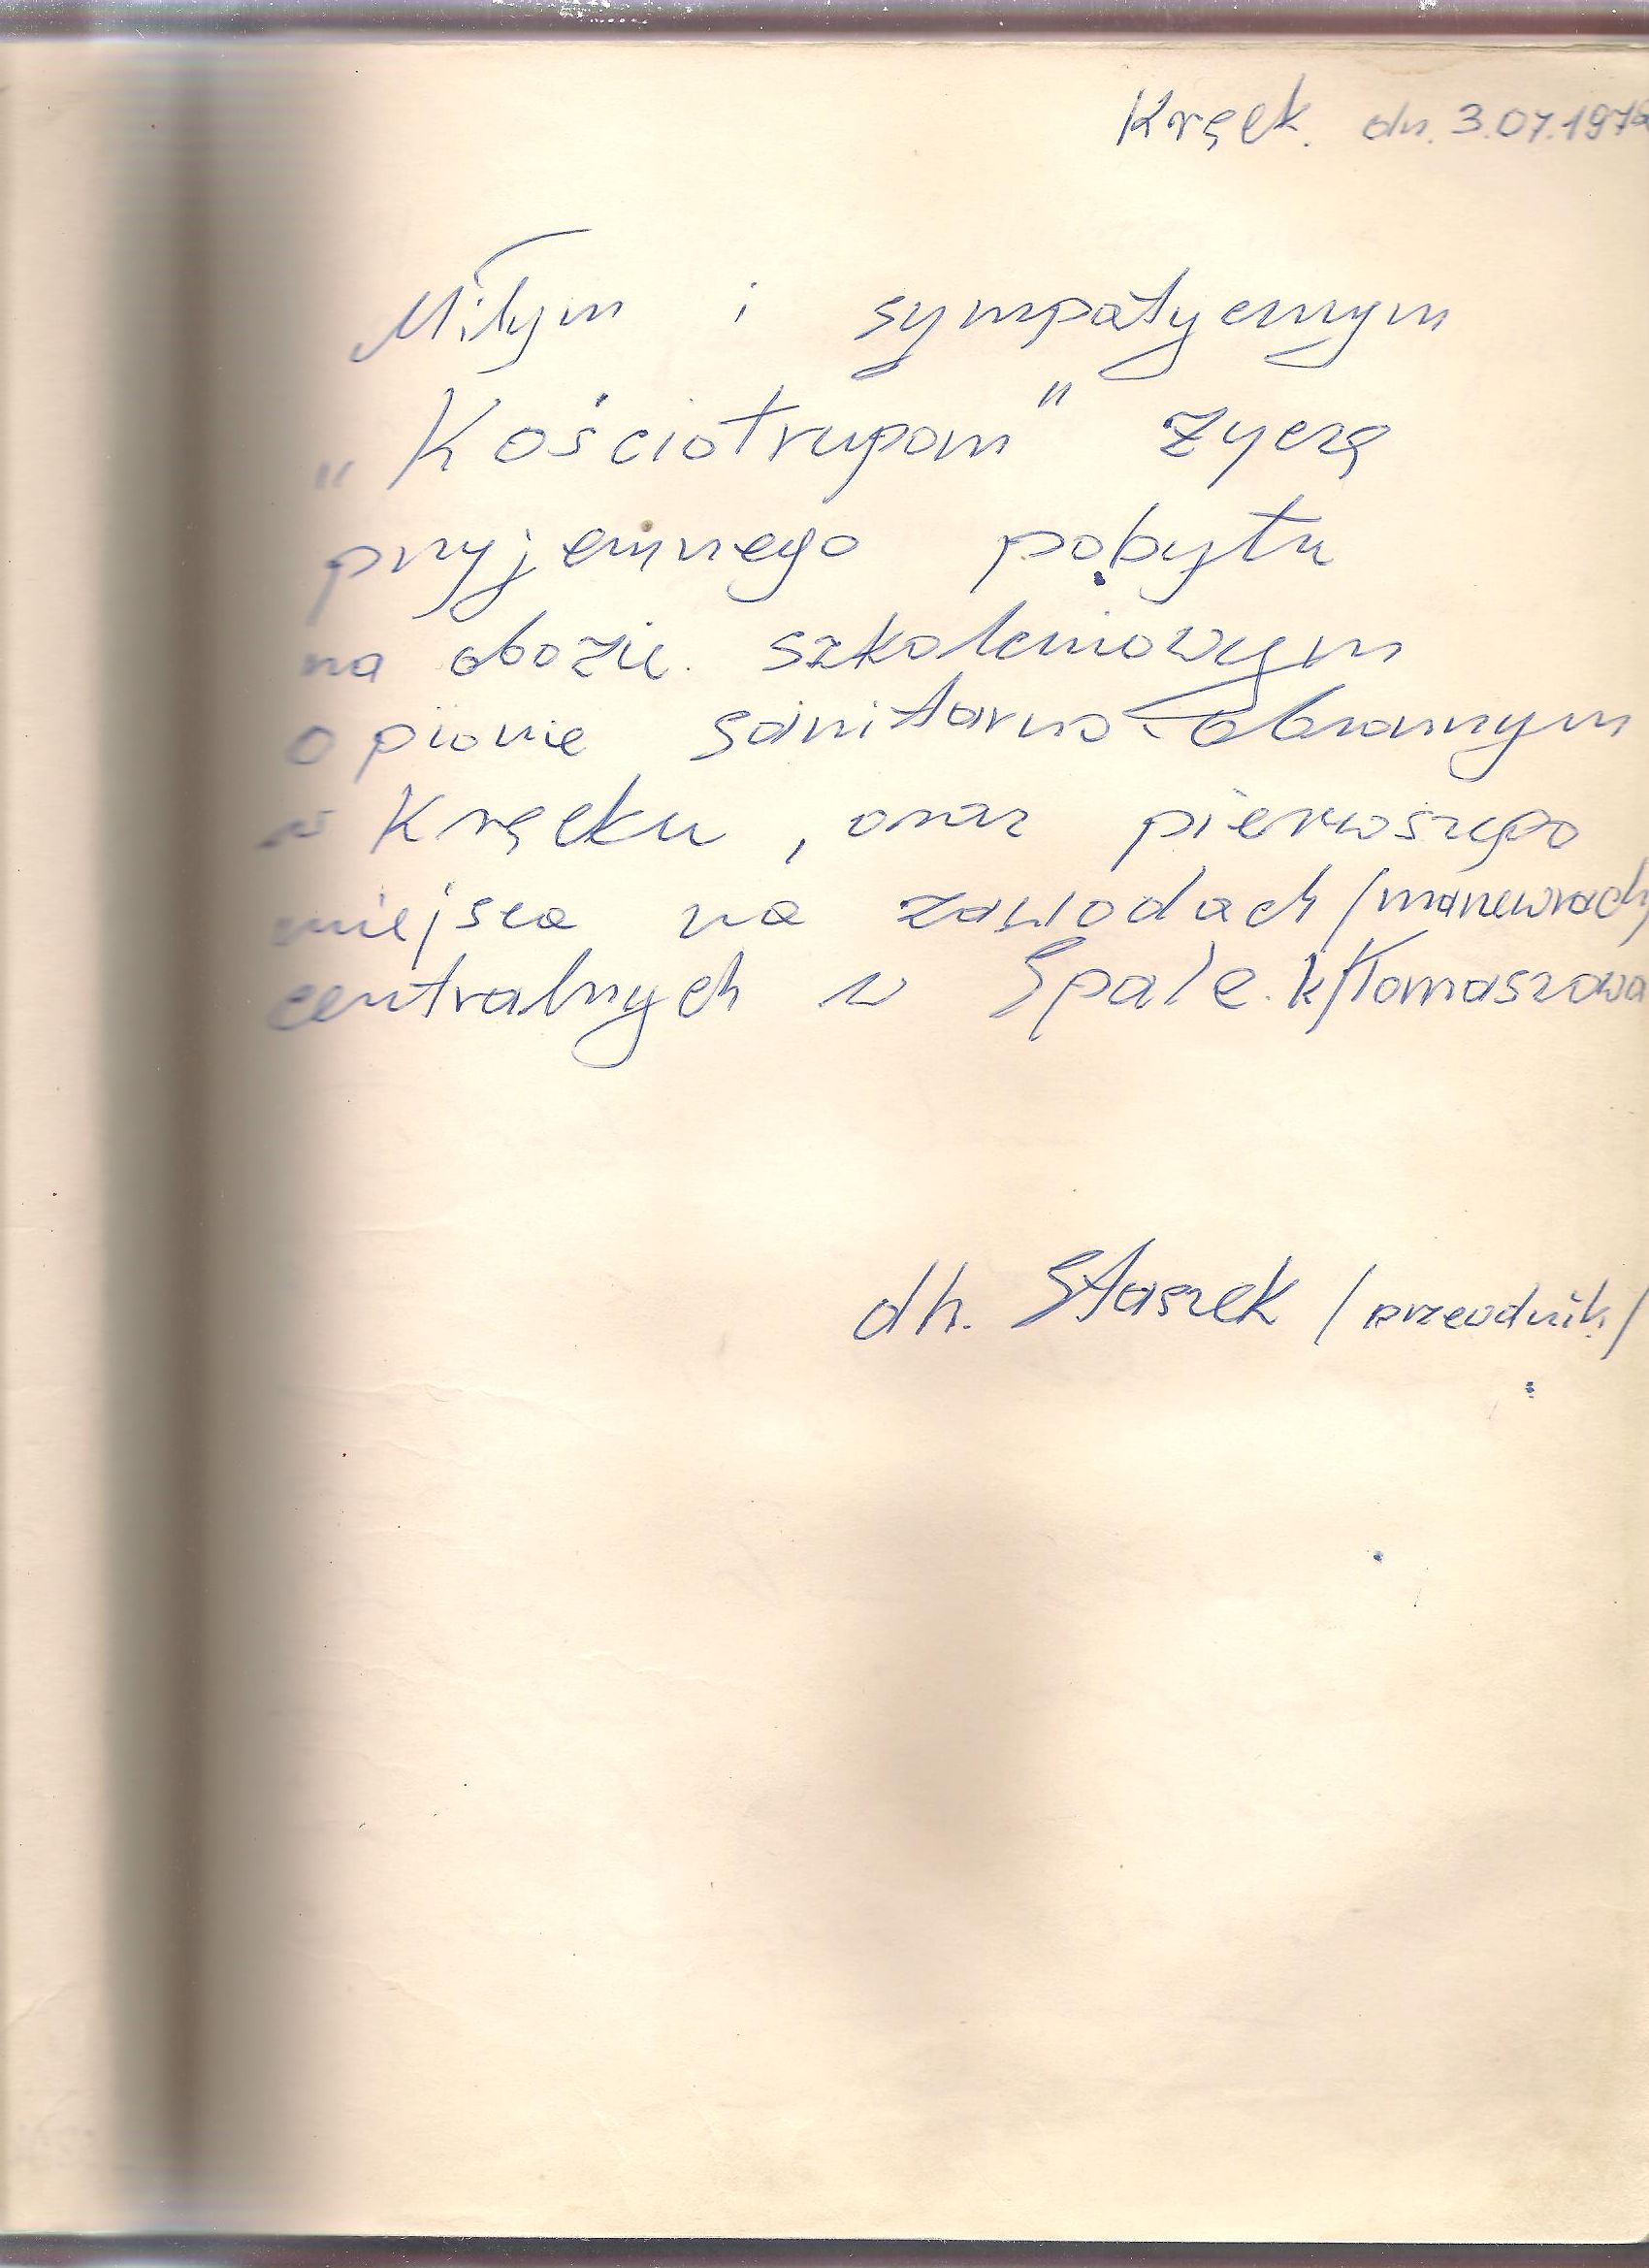 Kręck. dn. 3.07.197
Miłym i sympatycznym
„Kościotrupom" życzę
przyjemnego pobytu
na obozie szkoleniowym
o pionie sanitarno-obronnym
w Kręcku, oraz pierwszego
miejsca na zawodach /manewrach/
centralnych w Spale k/Tomaszowa
dh. Staszek /przewodnik/